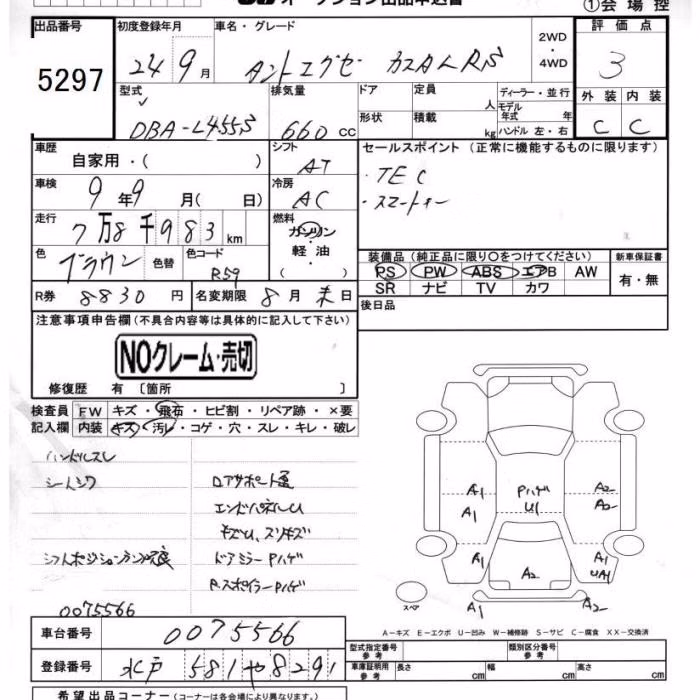 オークション出品申込書
①会場控
出品番号 初度登録年月 車名・グレード 2WD・4WD 評価点
5297 24 9月 タントエグゼ カスタムRS 3
型式 排気量 ドア 定員 人 ディーラー・並行 外装 内装
DBA-L455S 660cc 形状 積載 kg モデル年式 年 ハンドル 左・右 C C
車歴 自家用・( ) シフト AT セールスポイント (正常に機能するものに限ります)
車検 9年9月( 日) 冷房 AC ・TEC
走行 7万8千983km 燃料 ガソリン・軽油・( ) ・スマートキー
色 ブラウン 色替 色コード R59
装備品 (純正品に限り○をつけてください) 新車保証書
PS PW ABS エアB AW 有・無
SR ナビ TV カワ
R券 8830円 名変期限 8月末日 後日品
注意事項申告欄 (不具合内容等は具体的に記入して下さい)
NOクレーム・売切
修復歴 有 〔箇所 〕
検査員 FW キズ・飛石・ヒビ割・リペア跡・×要
記入欄 内装 キズ・汚レ・コゲ・穴・スレ・キレ・破レ
ハンドルスレ
シートシワ ロアサポート歪
エンドパネルU
キズU、スリキズ
シフトポジションランプ不良 ドアミラーPハゲ
R.スポイラーPハゲ
0075566
A1 Pハゲ A2
A1 U1 A2
A1 A2 A1
UA1
スペア A1 A2
A-キズ E-エクボ U-凹み W-補修跡 S-サビ C-腐食 XX-交換済
車台番号 0075566
型式指定番号 類別区分番号
登録番号 水戸 581 や 8291
車庫証明用参考 長さ cm 幅 cm 高さ cm
希望出品コーナー (コーナーは各会場により異なります。)